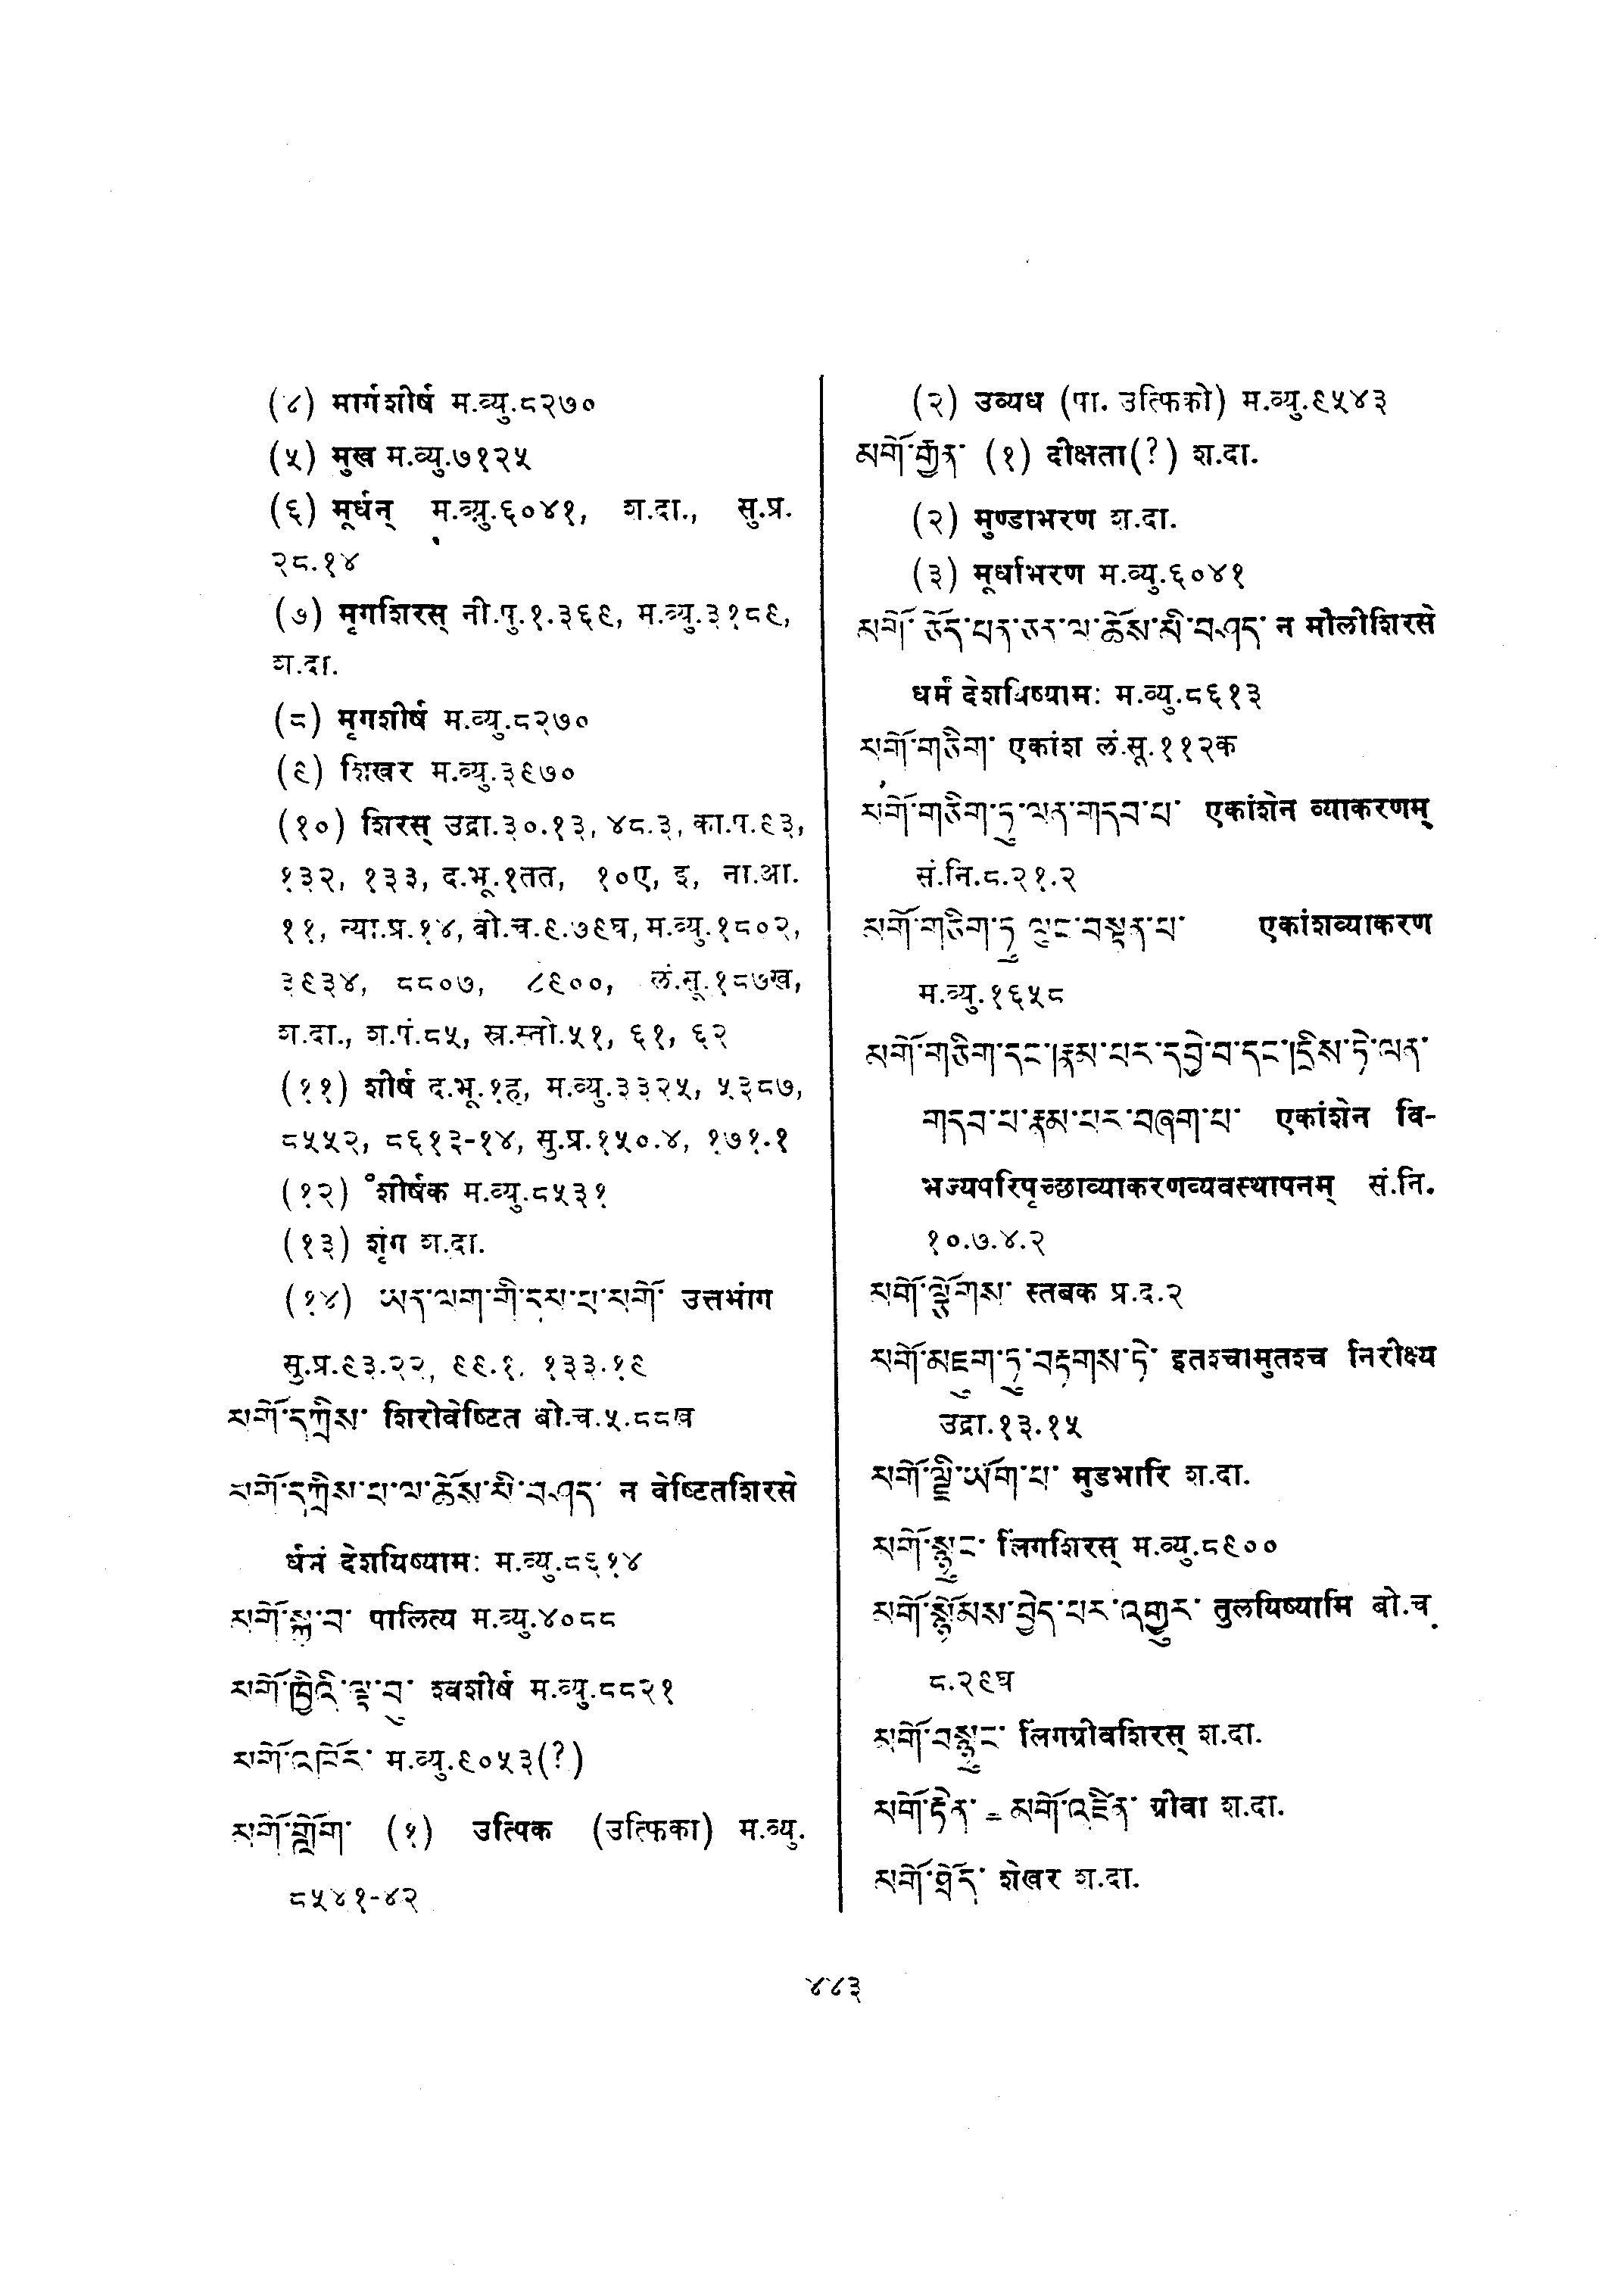 (४) मार्गशीर्ष म.व्यु.८२७०
(५) मुख म.व्यु.७१२५
(६) मूर्धन् म.व्यु.६०४१, श.दा., सु.प्र.
२८.१४
(७) मृगशिरस् नी.पु.१.३६९, म.व्यु.३१८९,
श.दा.
(८) मृगशीर्ष म.व्यु.८२७०
(९) शिखर म.व्यु.३९७०
(१०) शिरस् उद्रा.३०.१३, ४८.३, का.प.९३,
१३२, १३३, द.भू.१तत, १०ए, इ, ना.आ.
११, न्या.प्र.१४, बो.च.९.७९घ, म.व्यु.१८०२,
३९३४, ८८०७, ८९००, लं.सू.१८७ख,
श.दा., श.पं.८५, स्र.स्तो.५१, ६१, ६२
(११) शीर्ष द.भू.१ह, म.व्यु.३३२५, ५३८७,
८५५२, ८६१३-१४, सु.प्र.१५०.४, १७१.१
(१२) °शीर्षक म.व्यु.८५३१
(१३) शृंग श.दा.
(१४) ཡན་ལག་གི་དམ་པ་མགོ་ उत्तभांग
सु.प्र.९३.२२, ९९.१, १३३.१९
མགོ་དཀྲིས་ शिरोवेष्टित बो.च.५.८८ख
མགོ་དཀྲིས་པ་ལ་ཆོས་མི་བཤད་ न वेष्टितशिरसे
र्धनं देशयिष्यामः म.व्यु.८६१४
མགོ་སྐྱ་བ་ पालित्य म.व्यु.४०८८
མགོ་ཁྱིའི་ལྟ་བུ་ श्वशीर्ष म.व्यु.८८२१
མགོ་འཁོར་ म.व्यु.९०५३(?)
མགོ་གླེག་ (१) उत्पिक (उत्फिका) म.व्यु.
८५४१-४२
(२) उव्यध (पा. उत्फिको) म.व्यु.९५४३
མགོ་རྒྱན་ (१) दीक्षता(?) श.दा.
(२) मुण्डाभरण श.दा.
(३) मूर्धाभरण म.व्यु.६०४१
མགོ་ཅོད་པན་ཅན་ལ་ཆོས་མི་བཤད་ न मौलीशिरसे
धर्मं देशयिष्यामः म.व्यु.८६१३
མགོ་གཅིག་ एकांश लं.सू.११२क
མགོ་གཅིག་ཏུ་ལན་གདབ་པ་ एकांशेन व्याकरणम्
सं.नि.८.२१.२
མགོ་གཅིག་ཏུ་ལུང་བསྟན་པ་ एकांशव्याकरण
म.व्यु.१६५८
མགོ་གཅིག་དང་།རྣམ་པར་དབྱེ་བ་དང་།དྲིས་ཏེ་ལན་
གདབ་པ་རྣམ་པར་བཞག་པ་ एकांशेन वि-
भज्यपरिपृच्छाव्याकरणव्यवस्थापनम् सं.नि.
१०.७.४.२
མགོ་ལྕོགས་ स्तबक प्र.द.२
མགོ་མཇུག་ཏུ་བརྟགས་ཏེ་ इतश्चामुतश्च निरीक्ष्य
उद्रा.१३.१५
མགོ་ལྗི་ཡོག་པ་ मुडभारि श.दा.
མགོ་སྙུང་ लिंगशिरस् म.व्यु.८९००
མགོ་སྙོམས་བྱེད་པར་འགྱུར་ तुलयिष्यामि बो.च.
८.२९घ
མགོ་བསྙུང་ लिंगग्रीवशिरस् श.दा.
མགོ་རྟེན་ = མགོ་འཛིན་ ग्रीवा श.दा.
མགོ་ཐོད་ शेखर श.दा.
४८३